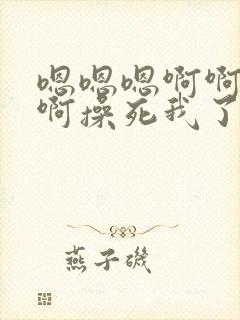 嗯嗯嗯啊啊
啊操死我了
燕子矶